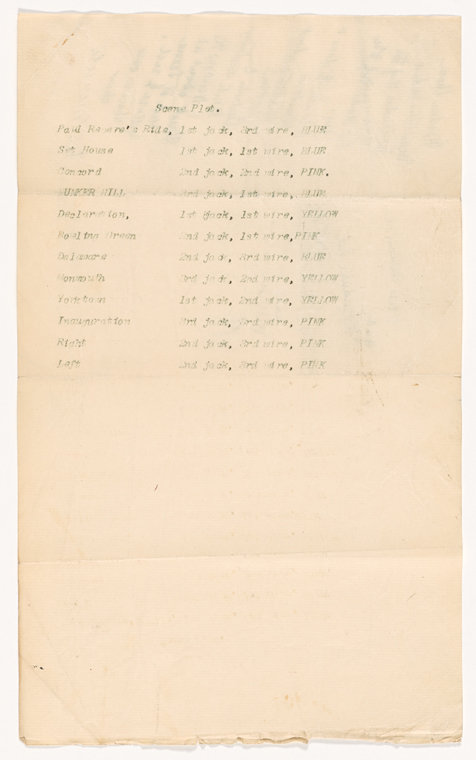 Scene Plot.
Paul Revere's Ride, 1st jack, 3rd wire, BLUE
Set House 1st jack, 1st wire, BLUE
Concord 2nd jack, 2nd wire, PINK.
BUNKER HILL 3rd jack, 1st wire, BLUE
Declaration, 1st jack, 1st wire, YELLOW
Bowling Green 2nd jack, 1st wire,PINK
Delaware 2nd jack, 3rd wire, BLUE
Monmouth 3rd jack, 2nd wire, YELLOW
Yorktown 1st jack, 2nd wire, YELLOW
Inauguration 3rd jack, 3rd wire, PINK
Right 2nd jack, 3rd wire, PINK
Left 2nd jack, 3rd wire, PINK